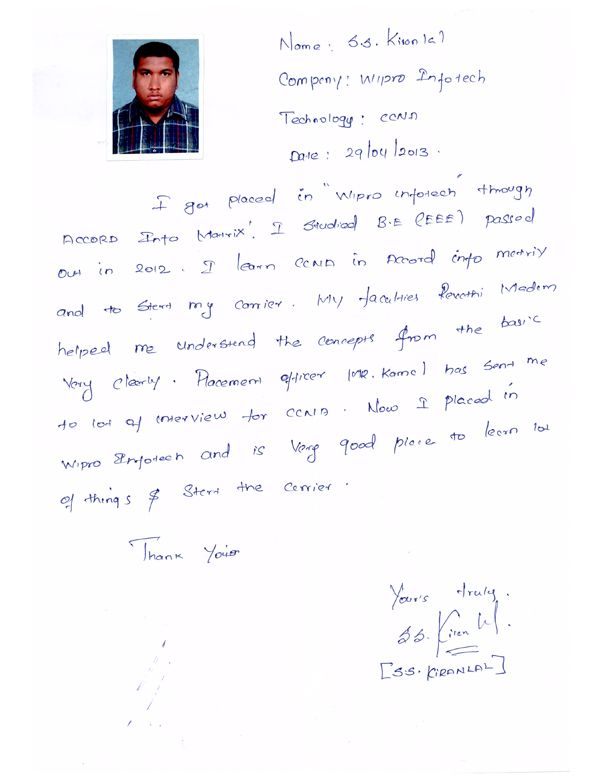 Name : S.S. Kiranlal
Company : Wipro Infotech
Technology : CCNA
Date : 29/04/2013.
I got placed in "Wipro infotech" through
ACCORD Info Matrix'. I Studied B.E (EEE) passed
out in 2012. I learn CCNA in Accord info matrix
and to start my carrier. My faculties Revathi Madam
helped me understand the concepts from the basic
very clearly. Placement officer (MR. Kamal) has sent me
to lot of interview for CCNA. Now I placed in
Wipro Infotech and is very good place to learn lot
of things & Start the carrier.
Thank You
Your's truly.
S.S. Kiran lal.
[S.S. KIRANLAL]